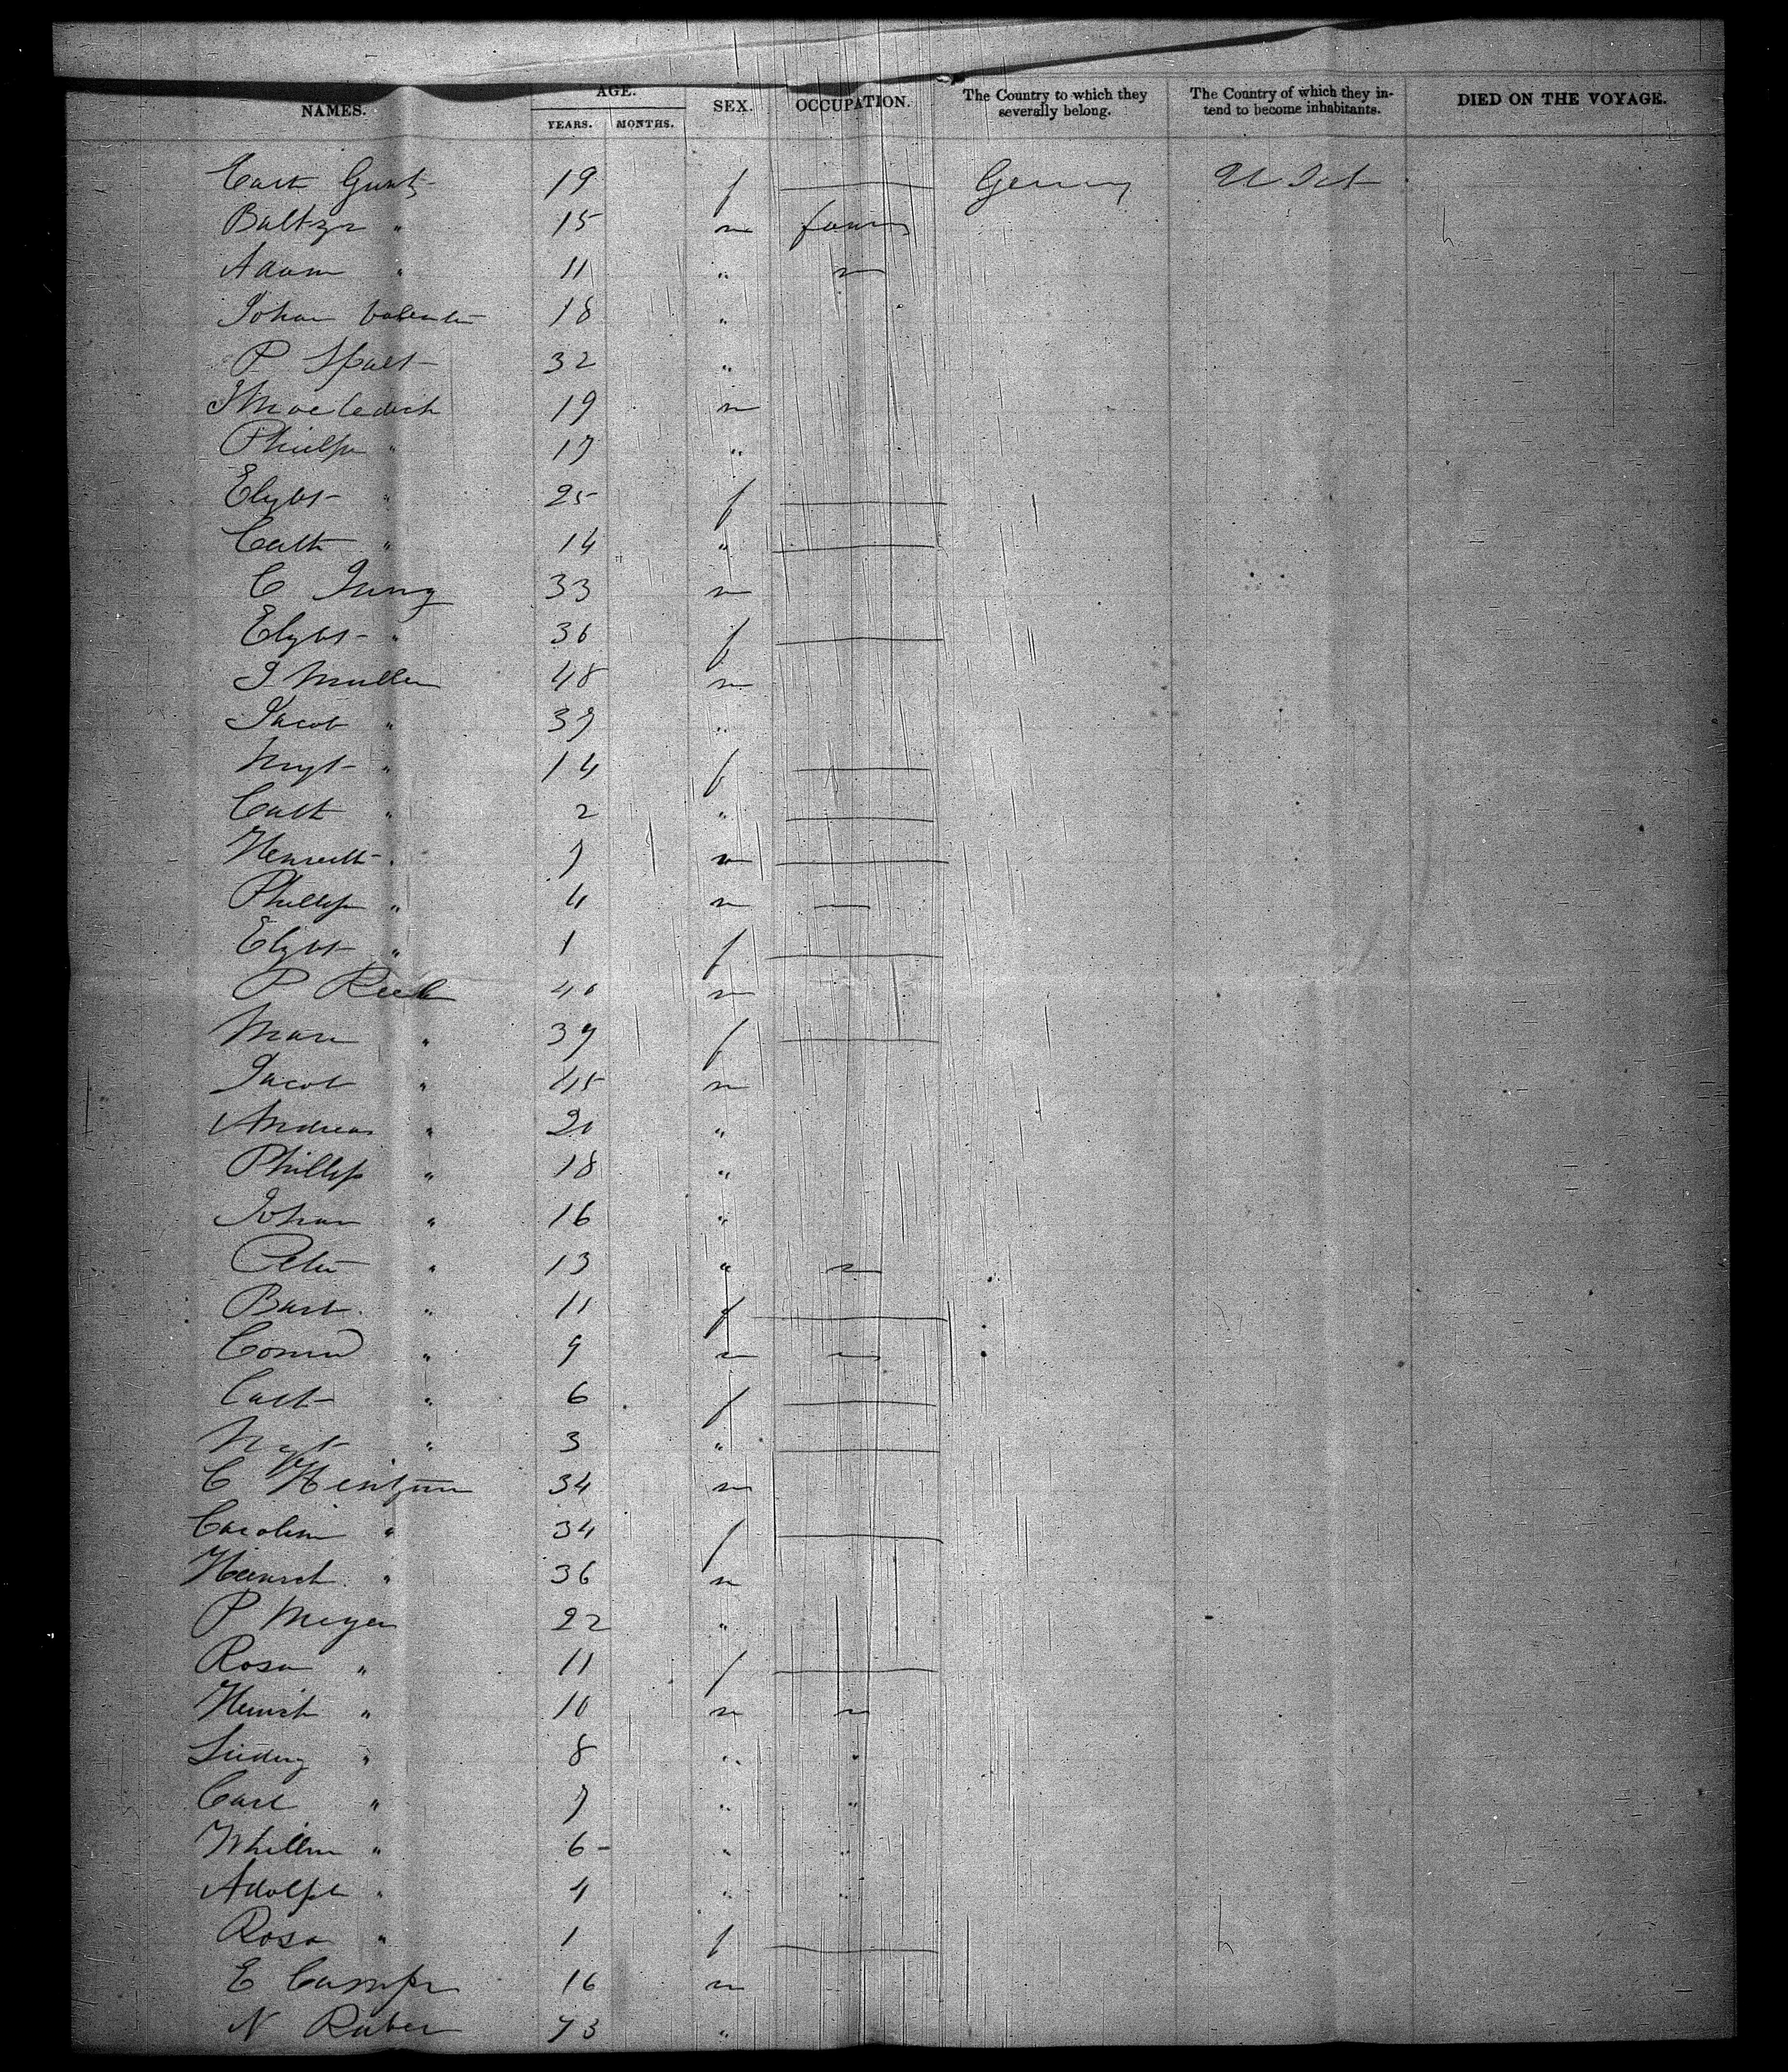 NAMES. AGE. YEARS. MONTHS. SEX. OCCUPATION. The Country to which they severally belong. The Country of which they intend to become inhabitants. DIED ON THE VOYAGE.
Cath 19 f — U St
Baltzr " 15 m
Adam " 11 "
Johan Valentin 18 "
P 32 "
19 m
Philip " 17 "
Elzbt " 25 f —
Cath " 14 " —
C Jung 33 m
Elzbt " 36 f —
J Muller 48 m
Jacob " 37 "
Mrgt " 14 f —
Cath " 2 " —
7 m —
Phillip " 4 m —
Elzbt " 1 f —
P 40 m
Mari " 39 f —
Jacob " 45 m
Andreas " 20 "
Phillip " 18 "
Johan " 16 "
Peter " 13 "
Barb. " 11 f —
Conrad " 9 m
Cath " 6 f —
Mrgt " 3 " —
C 34 m
Carolin " 34 f —
Heinrch " 36 m
P Meyer 22 "
Rosa " 11 f —
Heinrch " 10 m
Ludwig " 8 " "
Carl " 7 " "
Whillm " 6 - " "
Adolph " 4 " "
Rosa " 1 f —
E 16 m
N 73 "